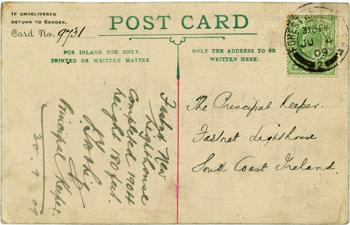 IF UNDELIVERED
RETURN TO SENDER.
Card No. 9731
POST CARD
FOR INLAND USE ONLY.
PRINTED OR WRITTEN MATTER.
ONLY THE ADDRESS TO BE
WRITTEN HERE.
FOREST
JU
09
Fastnet New
Lighthouse
Completed 1904
height 180 feet
Principal Keeper.
30. 7. 09
The Principal Keeper.
Fastnet Lighthouse
South Coast Ireland.